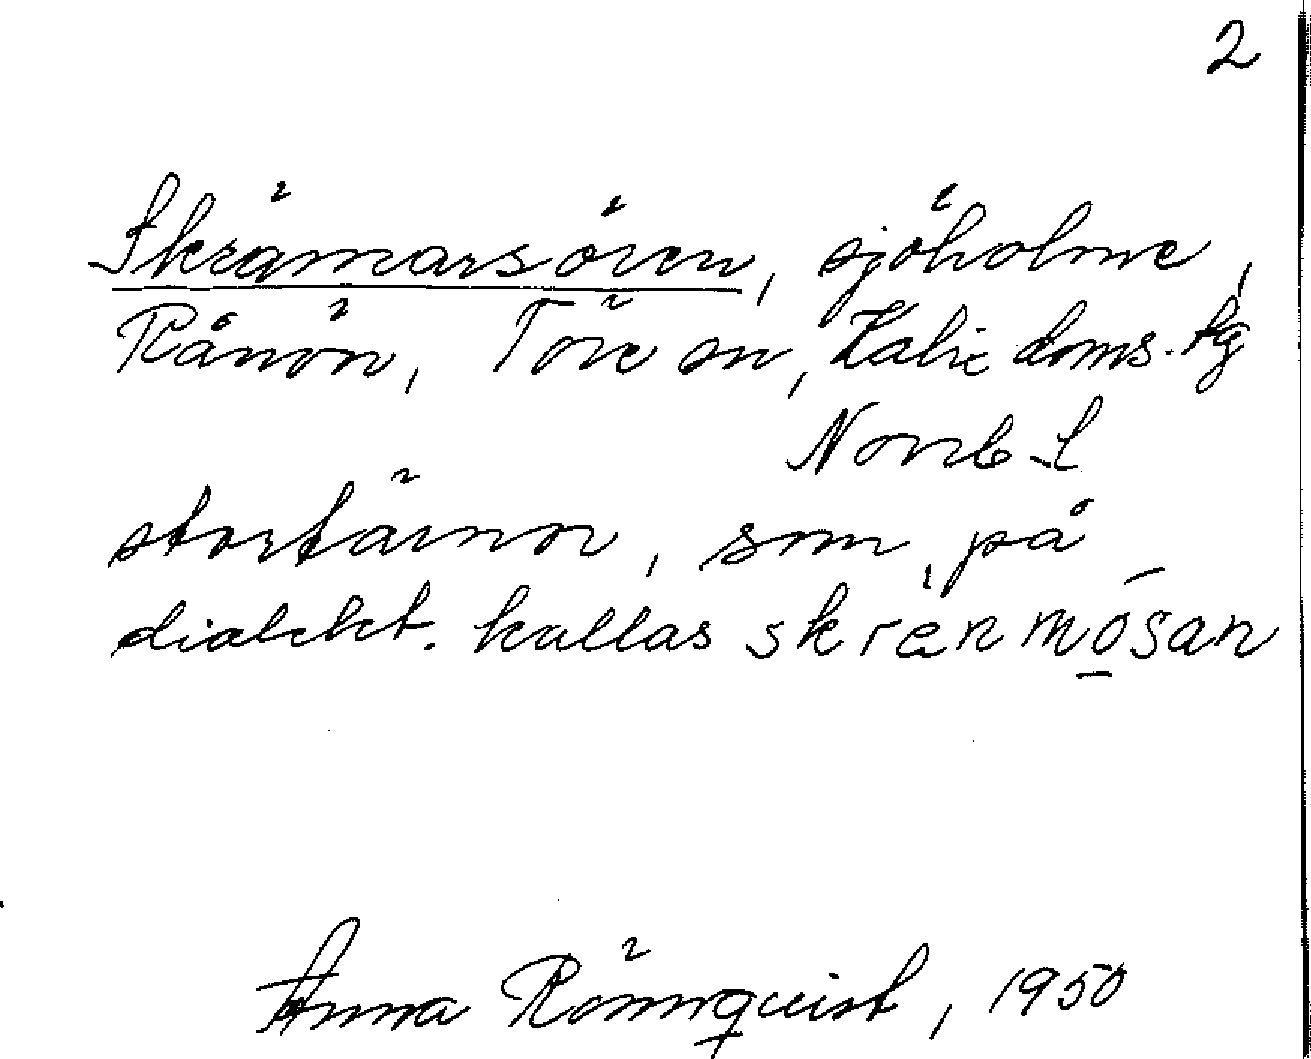 2
Skrämarsören, sjöholme,
Rånön, Töre sn, Kalix doms. fg
Norrb L
stortärnor, som på
dialekt. kallas skränmōsan
Anna Rönnquist, 1950